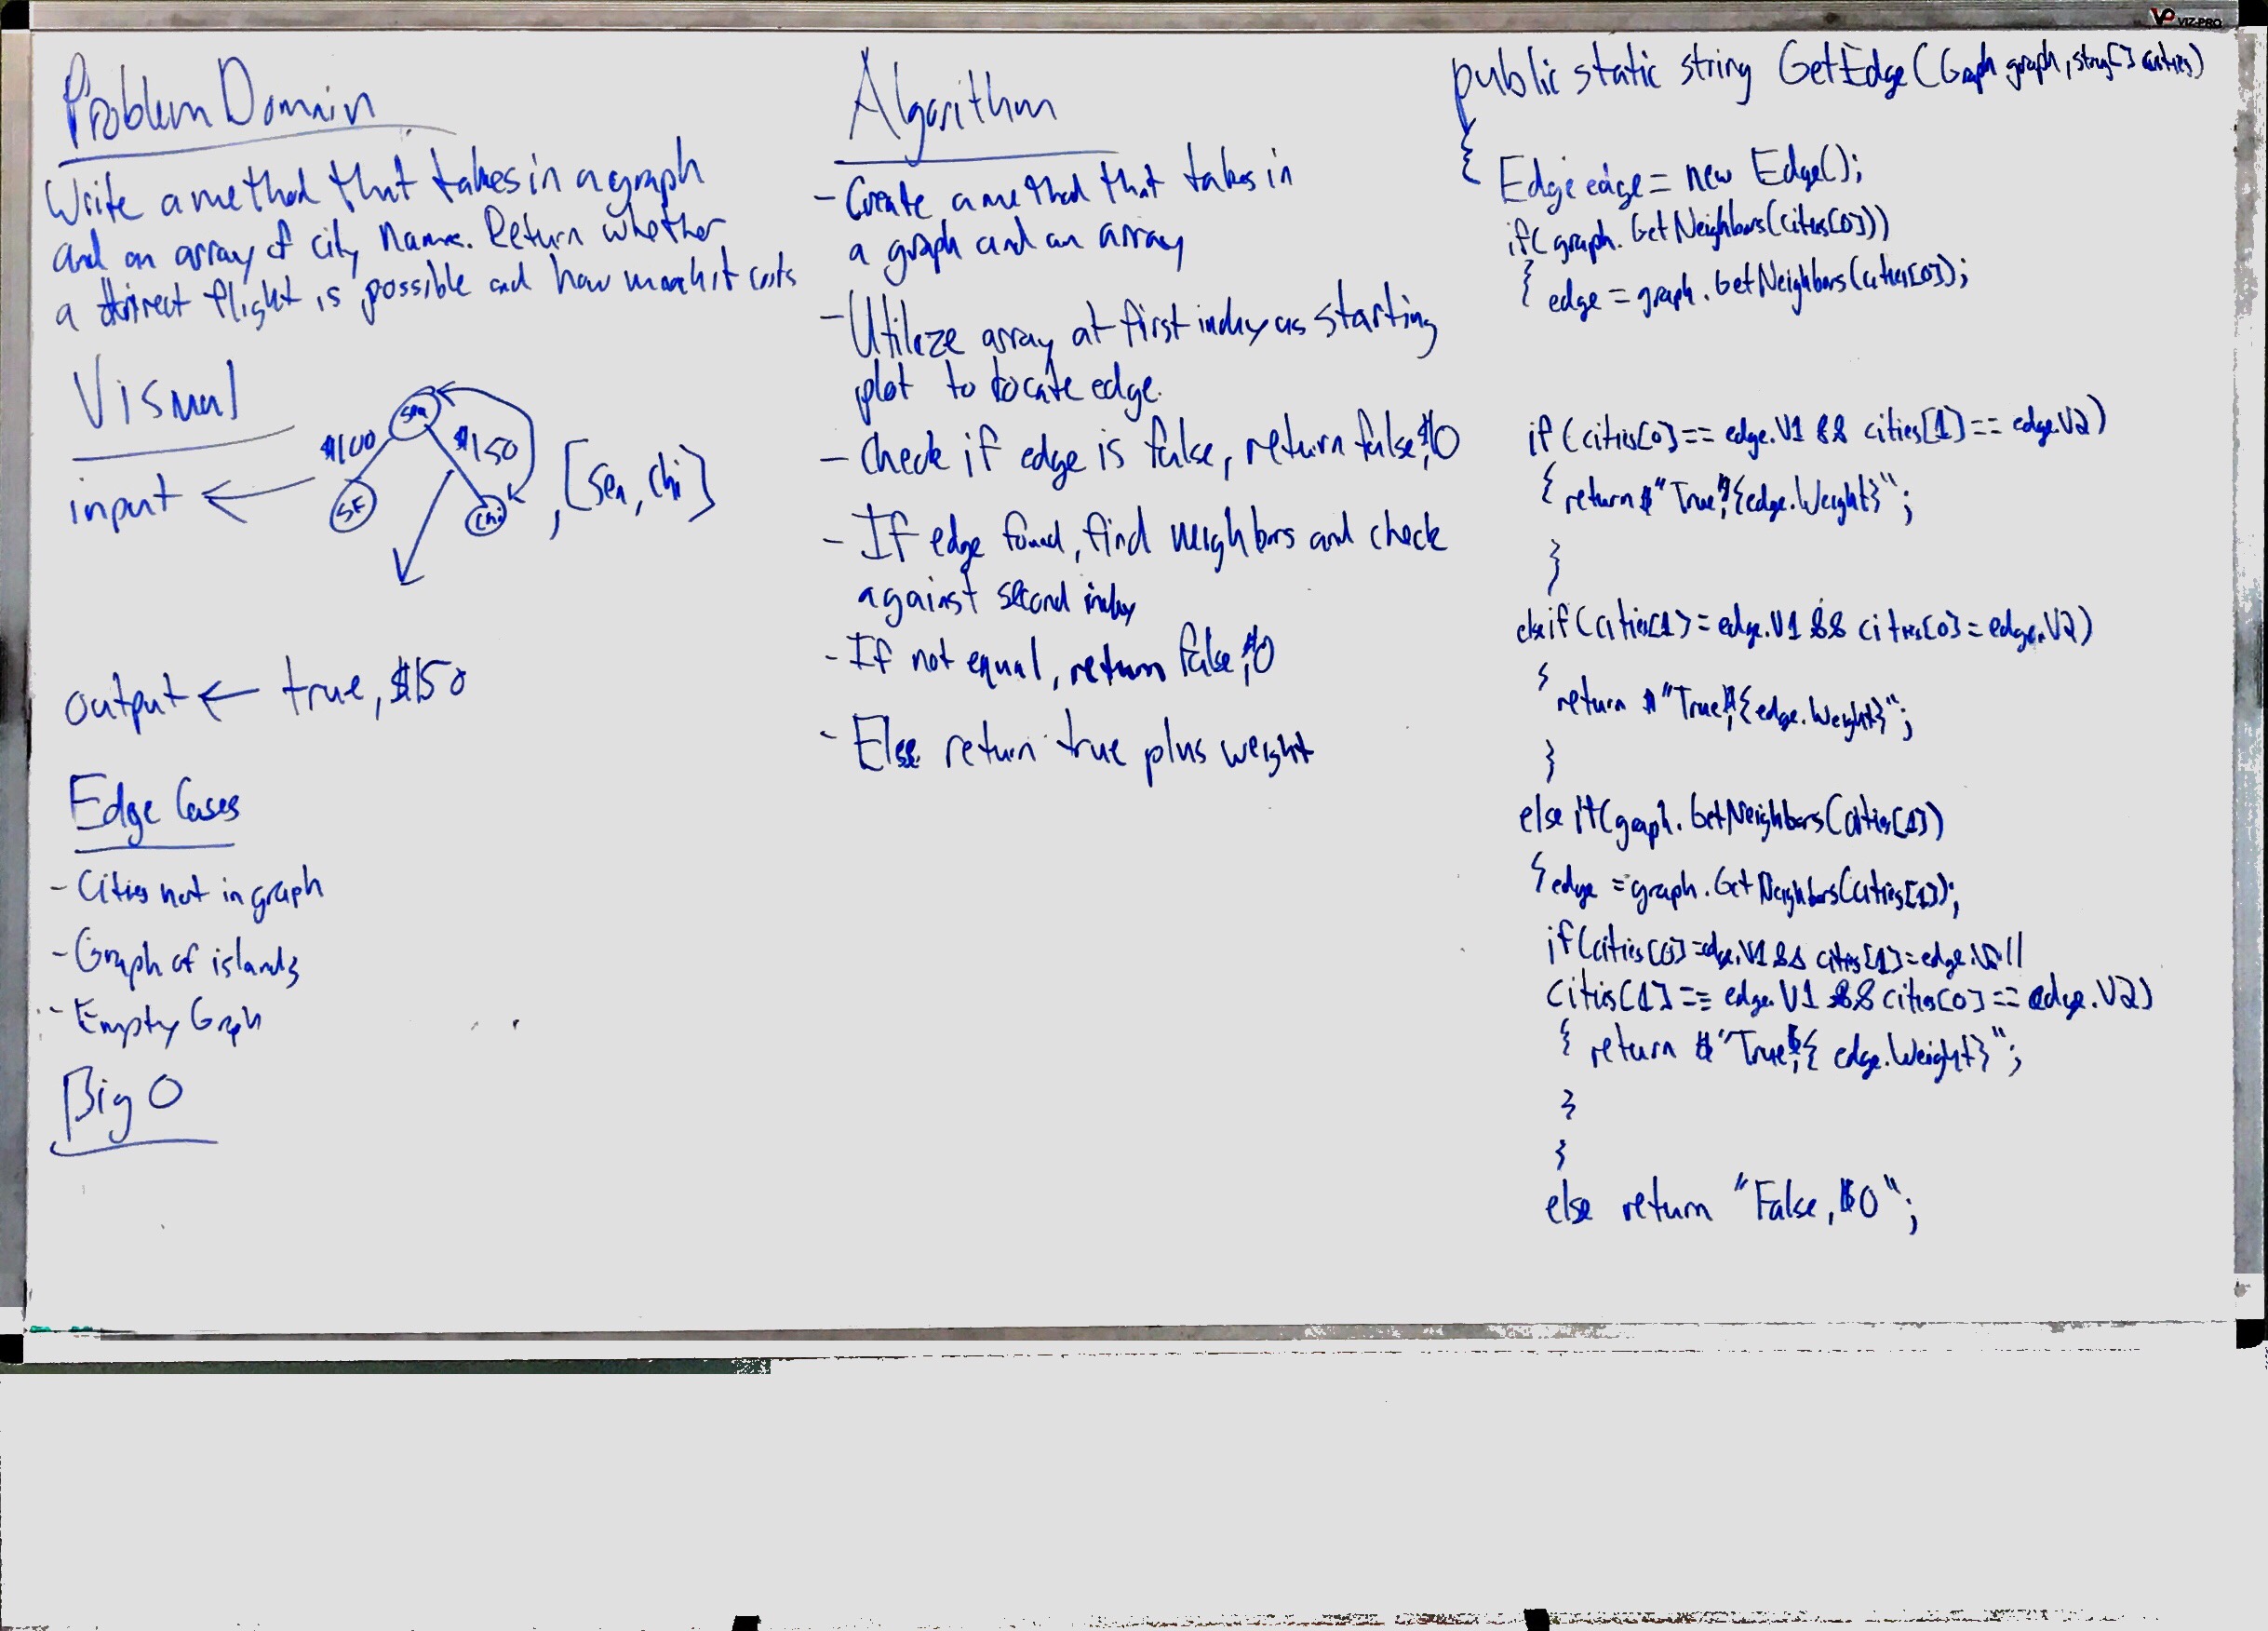 VP VIZ-PRO
Problem Domain
Write a method that takes in a graph
and an array of city names. Return whether
a direct flight is possible and how much it costs
Visual
Sea
$100
$150
input
SF
Chi
, [Sea, Chi]
output ← true, $150
Edge Cases
- Cities not in graph
- Graph of islands
- Empty Graph
Big O
Algorithm
- Create a method that takes in
a graph and an array
- Utilize array at first index as starting
plot to locate edge.
- Check if edge is false, return false, $0
- If edge found, find neighbors and check
against second index
- If not equal, return false, $0
- Else return true plus weight
public static string GetEdge(Graph graph, string[] cities)
{
Edge edge = new Edge();
if( graph. GetNeighbors(cities[0]))
{ edge = graph. GetNeighbors(cities[0]);
if (cities[0] == edge.V1 && cities[1] == edge.V2)
{ return $"True, ${edge.Weight}";
}
else if (cities[1] = edge.V1 && cities[0] = edge.V2)
{
return $"True, ${edge.Weight}";
}
else if(graph. GetNeighbors(cities[1])
{ edge = graph. GetNeighbors(cities[1]);
if(cities[0] = edge.V1 && cities[1] = edge.V2 ||
cities[1] == edge.V1 && cities[0] == edge.V2)
{ return $"True, ${edge.Weight}";
}
}
else return "False, $0";